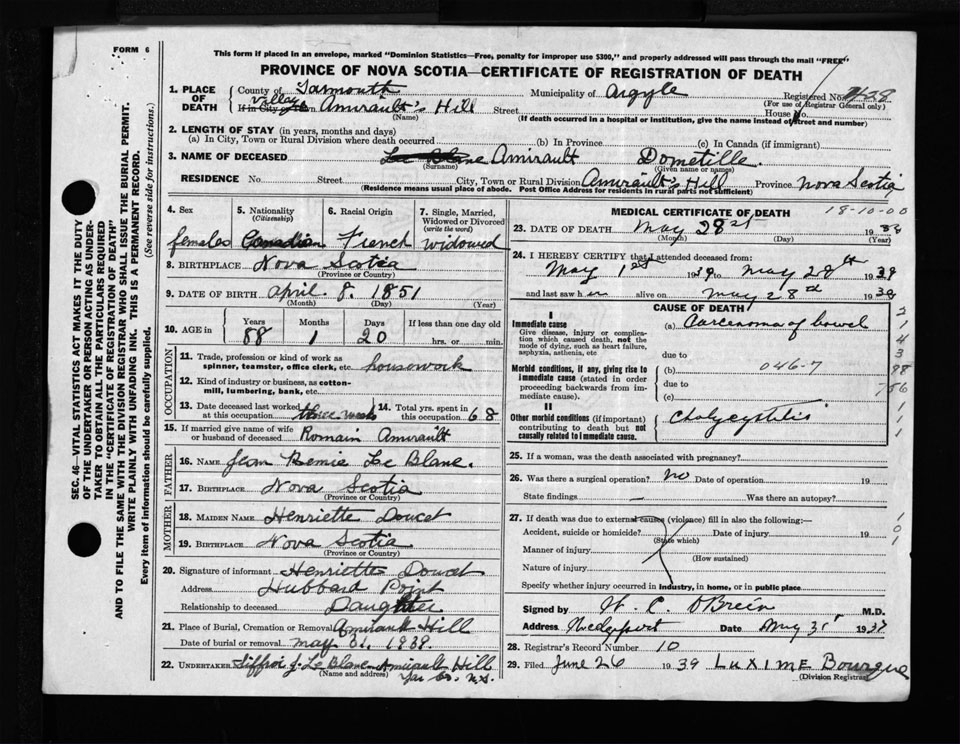 FORM 6
This form if placed in an envelope, marked "Dominion Statistics—Free, penalty for improper use $300," and properly addressed will pass through the mail "FREE"
PROVINCE OF NOVA SCOTIA—CERTIFICATE OF REGISTRATION OF DEATH
1. PLACE OF DEATH
County of Yarmouth Municipality of Argyle Registered No.
(For use of Registrar General only)
If in City or Town Village Amirault's Hill Street House No.
(Name) (If death occurred in a hospital or institution, give the name instead of street and number)
2. LENGTH OF STAY (in years, months and days)
(a) In City, Town or Rural Division where death occurred (b) In Province (c) In Canada (if immigrant)
3. NAME OF DECEASED Le Blanc Amirault Dometille.
(Surname) (Given name or names)
RESIDENCE No. Street City, Town or Rural Division Amirault's Hill Province Nova Scotia
(Residence means usual place of abode. Post Office Address for residents in rural parts not sufficient)
4. Sex 5. Nationality (Citizenship) 6. Racial Origin 7. Single, Married, Widowed or Divorced (write the word)
females Canadian French widowed
8. BIRTHPLACE Nova Scotia
(Province or Country)
9. DATE OF BIRTH April 8. 1851
(Month) (Day) (Year)
10. AGE in Years Months Days If less than one day old
88 1 20 hrs. or min.
OCCUPATION
11. Trade, profession or kind of work as spinner, teamster, office clerk, etc. housework
12. Kind of industry or business, as cotton-mill, lumbering, bank, etc.
13. Date deceased last worked at this occupation three weeks 14. Total yrs. spent in this occupation 68
15. If married give name of wife or husband of deceased Romain Amirault
FATHER
16. Name Jean Remie Le Blanc.
17. Birthplace Nova Scotia
(Province or Country)
MOTHER
18. Maiden Name Henriette Doucet
19. Birthplace Nova Scotia
(Province or Country)
20. Signature of informant Henriette Doucet
Address Hubbard Point
Relationship to deceased Daughter
21. Place of Burial, Cremation or Removal Amirault Hill
Date of burial or removal May 31. 1938.
22. Undertaker J. Le Blanc Amirault Hill
(Name and address) Yar Co. N.S.
MEDICAL CERTIFICATE OF DEATH 18-10-00
23. DATE OF DEATH May 28st 1938
(Month) (Day) (Year)
24. I HEREBY CERTIFY that I attended deceased from:
May 1st 1939 to May 28th 1939
and last saw h er alive on May 28d 1939
CAUSE OF DEATH
I
Immediate cause
Give disease, injury or complication which caused death, not the mode of dying, such as heart failure, asphyxia, asthenia, etc
(a) Carcenoma of bowel
due to
Morbid conditions, if any, giving rise to immediate cause (stated in order proceeding backwards from immediate cause).
(b) 046-7
due to
(c)
II
Other morbid conditions (if important) contributing to death but not causally related to immediate cause.
Cholycystitis
2
1
4
3
88
756
1
1
1
25. If a woman, was the death associated with pregnancy?
26. Was there a surgical operation? no Date of operation 19
State findings — Was there an autopsy?
27. If death was due to external causes (violence) fill in also the following:—
Accident, suicide or homicide? Date of injury 19
(State which)
Manner of injury
(How sustained)
Nature of injury
Specify whether injury occurred in industry, in home, or in public place
1
0
1
Signed by W. C. O'Brein M.D.
Address Wedgeport Date May 31 1937
28. Registrar's Record Number 10
29. Filed June 26 1939 Luxime Bourque
(Division Registrar)
SEC. 46—VITAL STATISTICS ACT MAKES IT THE DUTY
OF THE UNDERTAKER OR PERSON ACTING AS UNDER-
TAKER TO OBTAIN ALL THE PARTICULARS REQUIRED
IN THE "CERTIFICATE OF REGISTRATION OF DEATH"
AND TO FILE THE SAME WITH THE DIVISION REGISTRAR WHO SHALL ISSUE THE BURIAL PERMIT.
WRITE PLAINLY WITH UNFADING INK. THIS IS A PERMANENT RECORD.
Every item of information should be carefully supplied. (See reverse side for instructions.)